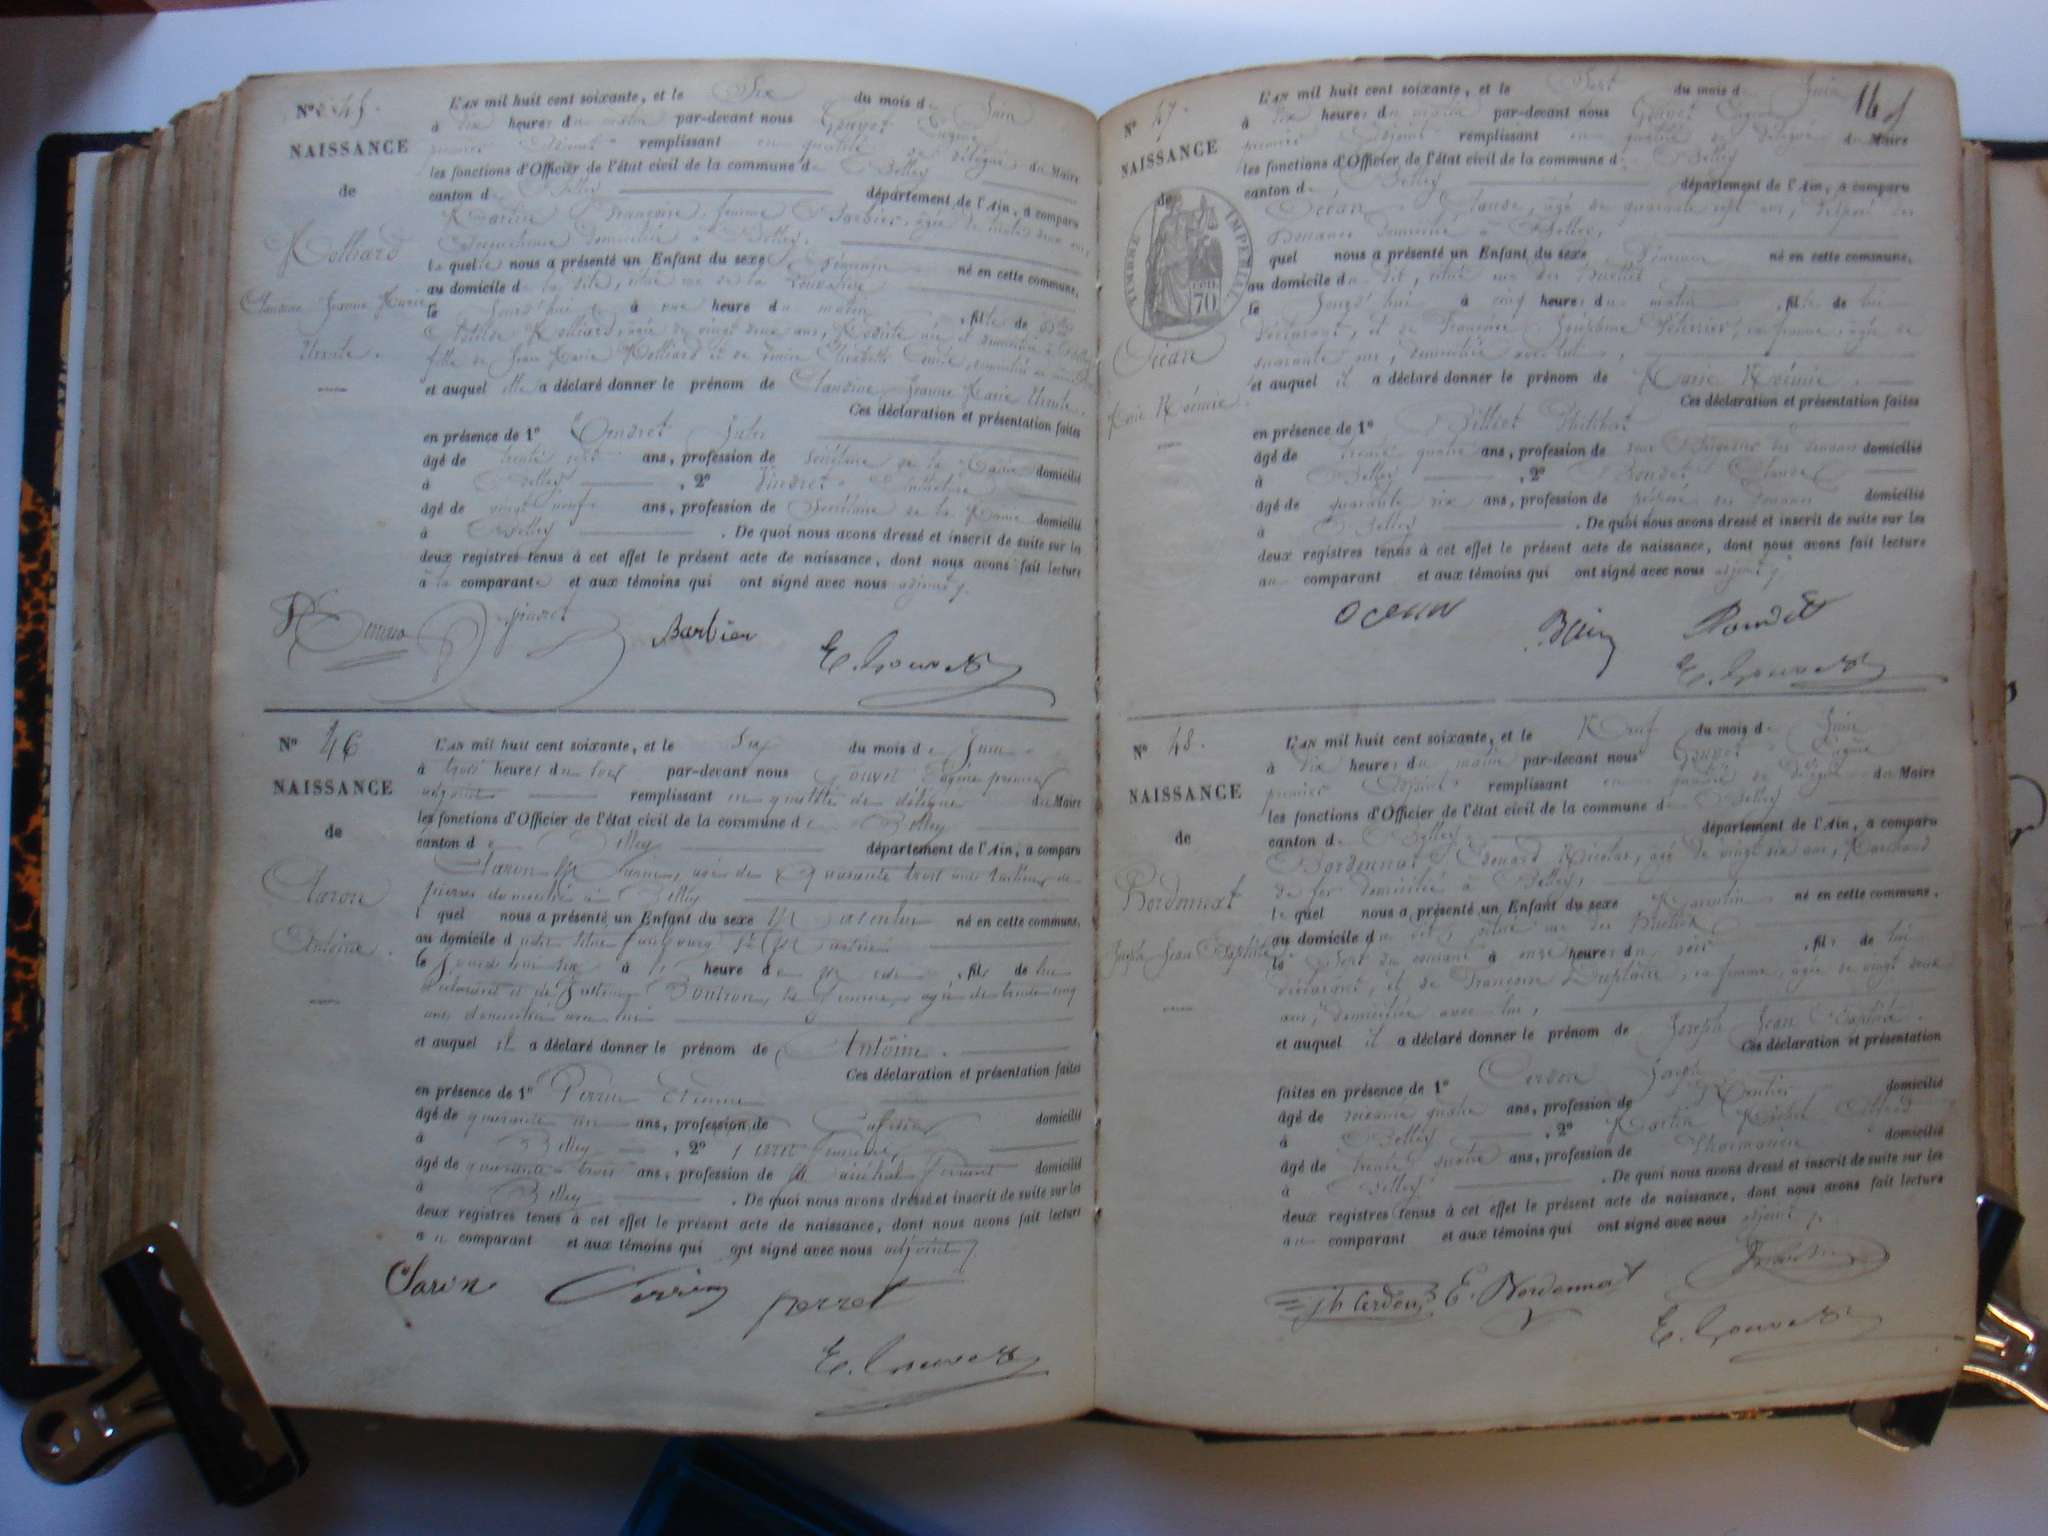 N° 45.
NAISSANCE
de
Molliard
Claudine Jeanne Marie
L'AN mil huit cent soixante, et le Six du mois de Juin
à dix heures du matin par-devant nous Gouvet Eugène
premier adjoint remplissant en qualité de délégué du Maire
les fonctions d'Officier de l'état civil de la commune de Belley
canton de Belley département de l'Ain, a comparu
Martin Françoise femme Barbier, âgée de trente deux ans,
domiciliée à Belley.
laquelle nous a présenté un Enfant du sexe Féminin né en cette commune,
au domicile de la dite, situé rue de la
le jourd'hui à une heure du matin, fille de
Molliard, âgée de vingt deux ans,
fille de Jean Marie Molliard et de
et auquel elle a déclaré donner le prénom de Claudine Jeanne Marie
Ces déclaration et présentation faites
en présence de 1° Jules
âgé de trente sept ans, profession de Secrétaire de la Mairie domicilié
à Belley, 2° Pindret
âgé de vingt neuf ans, profession de Secrétaire de la Mairie domicilié
à Belley. De quoi nous avons dressé et inscrit de suite sur les
deux registres tenus à cet effet le présent acte de naissance, dont nous avons fait lecture
à la comparante et aux témoins qui ont signé avec nous adjoint
Pindret Barbier
E. Gouvet
N° 46
NAISSANCE
de
Claron
Antoine.
L'AN mil huit cent soixante, et le Six du mois de Juin
à trois heures du soir par-devant nous Gouvet Eugène premier
adjoint remplissant en qualité de délégué du Maire
les fonctions d'Officier de l'état civil de la commune de Belley
canton de Belley département de l'Ain, a comparu
Claron âgé de Quarante trois ans tailleur de
pierres domicilié à Belley
lequel nous a présenté un Enfant du sexe Masculin né en cette commune,
au domicile dudit situé faubourg St Martin
le jourd'hui six à heure du, fils de lui
déclarant et de Boutron, sa femme, âgée de trente cinq
ans domiciliée avec lui
et auquel il a déclaré donner le prénom de Antoine.
Ces déclaration et présentation faites
en présence de 1° Perrin Etienne
âgé de quarante ans, profession de Cafetier domicilié
à Belley, 2° Perret
âgé de quarante trois ans, profession de Maréchal Ferrant domicilié
à Belley. De quoi nous avons dressé et inscrit de suite sur les
deux registres tenus à cet effet le présent acte de naissance, dont nous avons fait lecture
au comparant et aux témoins qui ont signé avec nous adjoint
Perrin perret
E. Gouvet
N° 47.
NAISSANCE
de
TIMBRE IMPÉRIAL
70
Océan
Marie Noémie.
L'AN mil huit cent soixante, et le Sept du mois de Juin
à dix heures du matin par-devant nous Gouvet Eugène
premier adjoint remplissant en qualité de délégué du Maire
les fonctions d'Officier de l'état civil de la commune de Belley
canton de Belley département de l'Ain, a comparu
Océan Claude, âgé de quarante sept ans, préposé des
Douanes domicilié à Belley,
quel nous a présenté un Enfant du sexe Féminin né en cette commune,
au domicile du dit, situé rue des
le jourd'hui à cinq heures du matin, fille de lui
déclarant, et de Françoise Joséphine, sa femme, âgée de
quarante ans, domiciliée avec lui,
et auquel il a déclaré donner le prénom de Marie Noémie.
Ces déclaration et présentation faites
en présence de 1° Philibert
âgé de trente quatre ans, profession de sous Brigadier des douanes domicilié
à Belley, 2° Claude
âgé de quarante six ans, profession de préposé des douanes domicilié
à Belley. De quoi nous avons dressé et inscrit de suite sur les
deux registres tenus à cet effet le présent acte de naissance, dont nous avons fait lecture
au comparant et aux témoins qui ont signé avec nous adjoint
E. Gouvet
N° 48.
NAISSANCE
de
Bordonnat
Joseph Jean Baptiste.
L'AN mil huit cent soixante, et le Neuf du mois de Juin
à dix heures du matin par-devant nous Gouvet Eugène
premier adjoint remplissant en qualité de délégué du Maire
les fonctions d'Officier de l'état civil de la commune de Belley
canton de Belley département de l'Ain, a comparu
Bordonnat Edouard Nicolas, âgé de vingt six ans, Marchand
de fer domicilié à Belley,
lequel nous a présenté un Enfant du sexe Masculin né en cette commune,
au domicile du dit, situé rue des
le Sept du courant à onze heures du soir, fils de lui
déclarant, et de Françoise, sa femme, âgée de vingt deux
ans, domiciliée avec lui,
et auquel il a déclaré donner le prénom de Joseph Jean Baptiste.
Ces déclaration et présentation
faites en présence de 1° Cerdon Joseph
âgé de soixante quatre ans, profession de Rentier domicilié
à Belley, 2° Martin Alfred
âgé de trente quatre ans, profession de Pharmacien domicilié
à Belley. De quoi nous avons dressé et inscrit de suite sur les
deux registres tenus à cet effet le présent acte de naissance, dont nous avons fait lecture
au comparant et aux témoins qui ont signé avec nous adjoint
Jh Cerdon E. Bordonnat
E. Gouvet